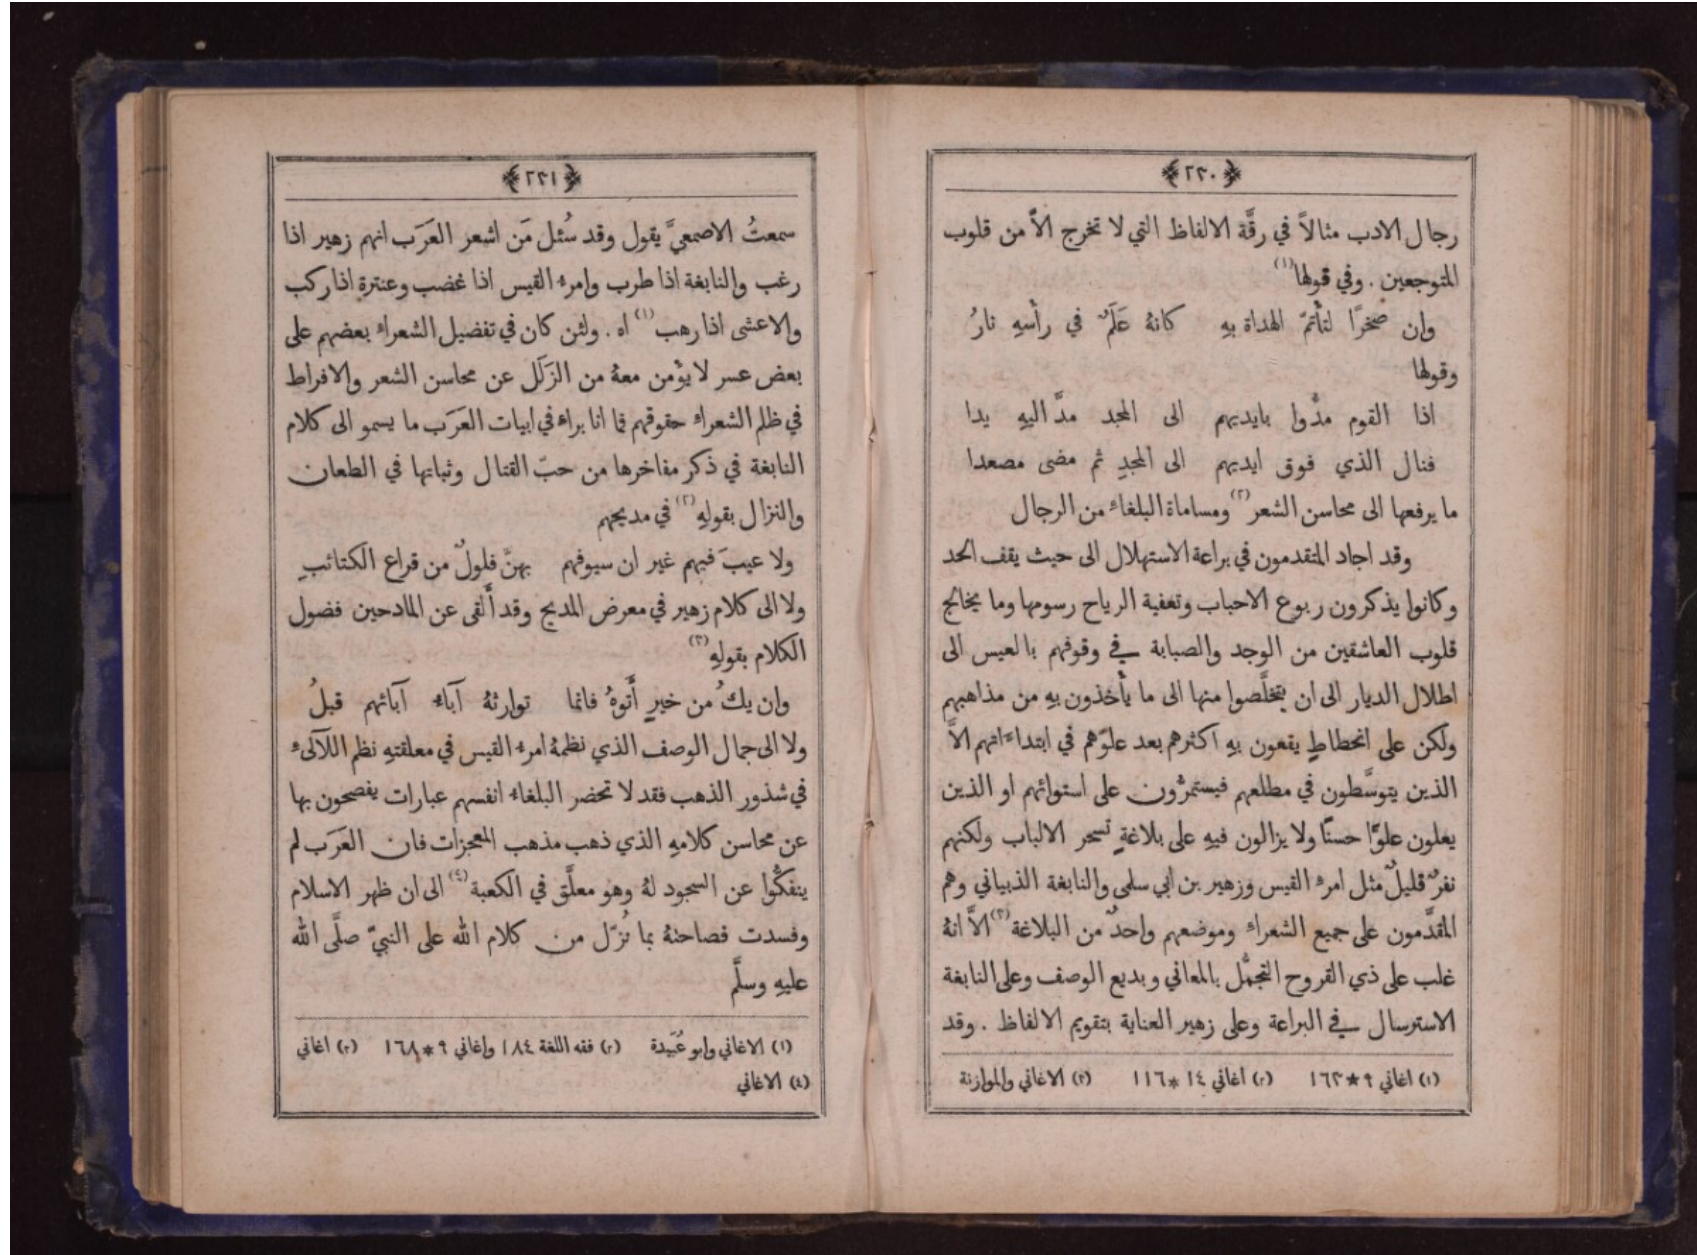 ﴿٢٣٠﴾
رجال الادب مثالاً في رقَّة الالفاظ التي لا تخرج الاَّ من قلوب
المتوجعين . وفي قولها(١)
وان صخرًا لتأتمّ الهداة بهِ كانهُ عَلَمٌ في رأسهِ نارُ
وقولها
اذا القوم مدُّوا بايديهم الى المجد مدَّ اليهِ يدا
فنال الذي فوق ايديهم الى المجدِ ثم مضى مصعدا
ما يرفعها الى محاسن الشعر(٢) ومساماة البلغاء من الرجال
وقد اجاد المتقدمون في براعة الاستهلال الى حيث يقف الحد
وكانوا يذكرون ربوع الاحباب وتعفية الرياح رسومها وما يخالج
قلوب العاشقين من الوجد والصبابة في وقوفهم بالعيس الى
اطلال الديار الى ان يتخلَّصوا منها الى ما يأخذون بهِ من مذاهبهم
ولكن على انحطاطٍ يقعون بهِ اكثرهم بعد علوّهم في ابتداءاتهم الاَّ
الذين يتوسَّطون في مطلعهم فيستمرُّون على استوائهم او الذين
يعلون علوًّا حسنًا ولا يزالون فيهِ على بلاغةٍ تسحر الالباب ولكنهم
نفرٌ قليلٌ مثل امرء القيس وزهير بن ابي سلمى والنابغة الذبياني وهم
المقدَّمون على جميع الشعراء وموضعهم واحدٌ من البلاغة(٣) الاَّ انهُ
غلب على ذي القروح التجمُّل بالمعاني وبديع الوصف وعلى النابغة
الاسترسال في البراعة وعلى زهير العناية بتقويم الالفاظ . وقد
(١) اغاني ٩*١٦٣ (٢) اغاني ١٤*١١٦ (٣) الاغاني والموازنة
﴿٢٣١﴾
سمعتُ الاصمعيَّ يقول وقد سُئل مَن اشعر العَرَب انهم زهير اذا
رغب والنابغة اذا طرب وامرء القيس اذا غضب وعنترة اذا ركب
والاعشى اذا رهب(١) اه . ولئن كان في تفضيل الشعراء بعضهم على
بعض عسر لا يؤمن معهُ من الزَلَل عن محاسن الشعر والافراط
في ظلم الشعراء حقوقهم فما انا براءٍ في ابيات العَرَب ما يسمو الى كلام
النابغة في ذكر مفاخرها من حبّ القتال وثباتها في الطعان
والنزال بقولهِ(٢) في مديحهم
ولا عيبَ فيهم غير ان سيوفهم بهنَّ فلولٌ من قراع الكتائبِ
ولا الى كلام زهير في معرض المديح وقد أَلقى عن المادحين فضول
الكلام بقولهِ(٣)
وان يكُ من خيرٍ أَتوهُ فانما توارثهُ آباءُ آبائهم قبلُ
ولا الى جمال الوصف الذي نظمهُ امرء القيس في معلقتهِ نظم اللآلىء
في شذور الذهب فقد لا تحضر البلغاء انفسهم عبارات يفصحون بها
عن محاسن كلامهِ الذي ذهب مذهب المعجزات فان العَرَب لم
ينفكُّوا عن السجود لهُ وهو معلَّق في الكعبة(٤) الى ان ظهر الاسلام
وفسدت فصاحتهُ بما نُزّل من كلام الله على النبيّ صلَّى الله
عليهِ وسلَّم
(١) الاغاني وابو عُبَيدة (٢) فقه اللغة ١٨٤ واغاني ٩*١٦٨ (٣) اغاني
(٤) الاغاني